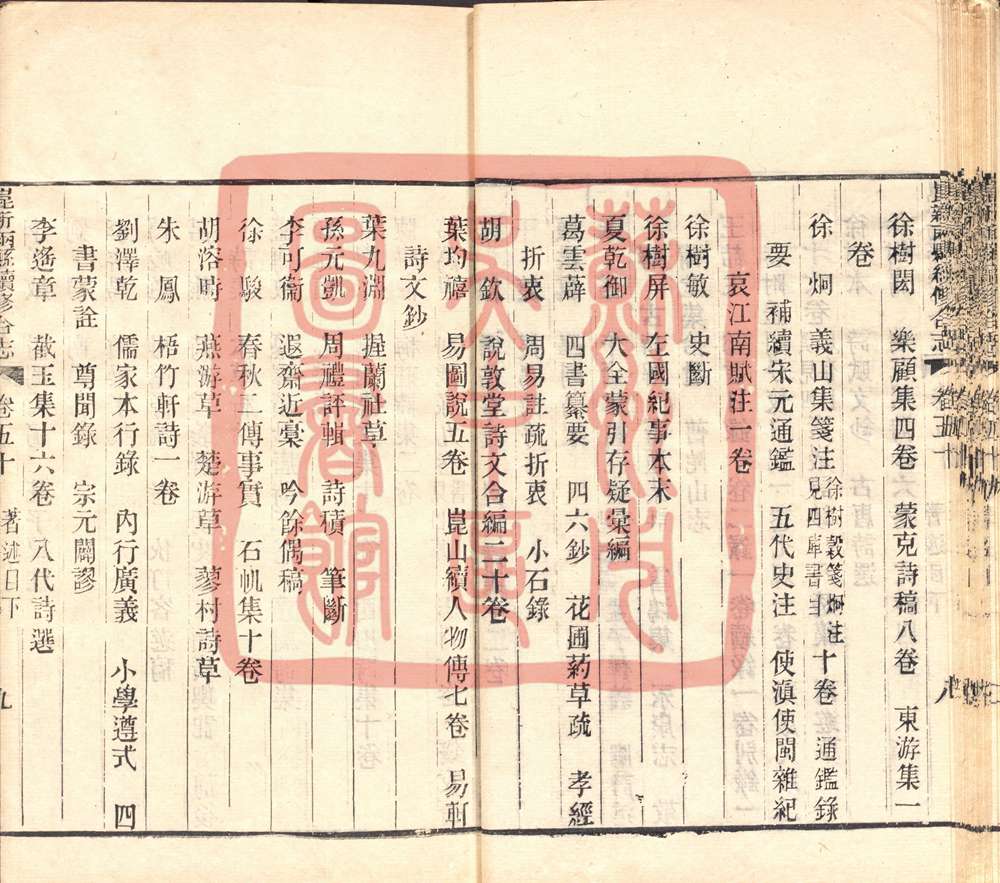 徐樹閎 樂顧集四卷 蒙克詩稿八卷 東游集一
卷
徐炯 義山集箋注 徐樹穀箋炯注見四庫書目 十卷 通鑑錄
要 補續宋元通鑑 五代史注 使滇使閩雜紀
哀江南賦注一卷
徐樹敏 史斷
徐樹屏 左國紀事本末
夏乾御 大全蒙引存疑彙編
葛雲薜 四書纂要 四六鈔 花圃葯草疏 孝經
折衷 周易註疏折衷 小石錄
胡欽 說敦堂詩文合編二十卷
葉均禧 易圖說五卷 崑山續人物傳七卷 易軒
詩文鈔
葉九淵 握蘭社草
孫元凱 周禮評輯 詩積 筆斷
李可衞 遐齋近稾 吟餘偶稿
徐駿 春秋三傳事實 石帆集十卷
胡溶時 燕游草 楚游草 蓼村詩草
朱鳳 梧竹軒詩一卷
劉澤乾 儒家本行錄 內行廣義 小學遵式 四
書蒙詮 尊聞錄 宗元闢謬
李遙章 截玉集十六卷 八代詩選
崑新兩縣續修合志 卷五十 著述目下 九
蘇州大吏圖書館